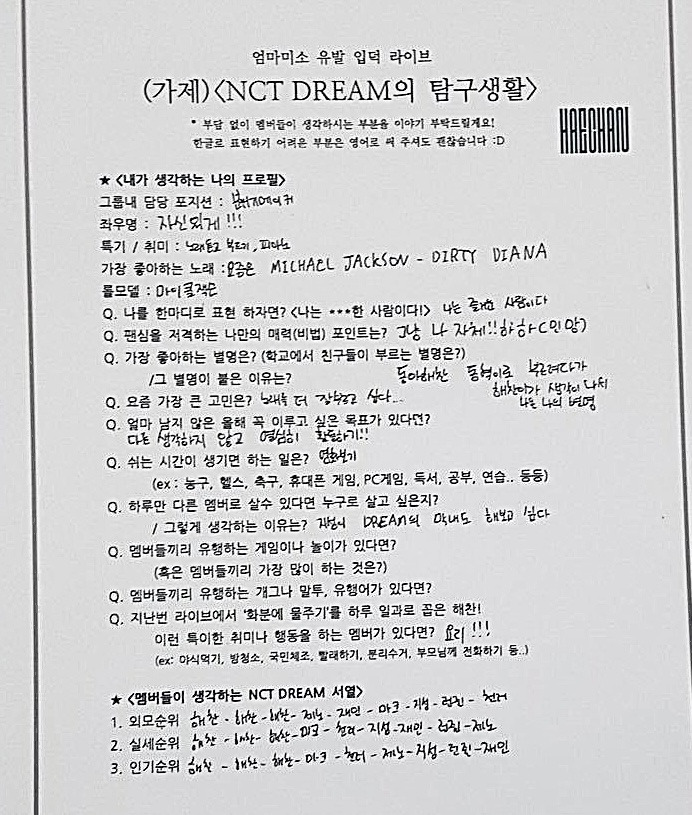 엄마미소 유발 입덕 라이브
(가제)<NCT DREAM의 탐구생활>
* 부담 없이 멤버들이 생각하시는 부분을 이야기 부탁드릴게요!
한글로 표현하기 어려운 부분은 영어로 써 주셔도 괜찮습니다 :D
HAECHAN
★ <내가 생각하는 나의 프로필>
그룹내 담당 포지션 : 분위기메이커
좌우명 : 자신있게 !!!
특기 / 취미 : 노래듣고 부르기, 피아노
가장 좋아하는 노래 : 요즘은 MICHAEL JACKSON - DIRTY DIANA
롤모델 : 마이클잭슨
Q. 나를 한마디로 표현 하자면? <나는 ***한 사람이다!> 나는 즐거운 사람이다
Q. 팬심을 저격하는 나만의 매력(비법) 포인트는? 그냥 나 자체!! 하하 (민망)
Q. 가장 좋아하는 별명은? (학교에서 친구들이 부르는 별명은?)
/그 별명이 붙은 이유는? 동아해찬 동혁이로 부르려다가
해찬이가 생각이 나서
나온 나의 별명
Q. 요즘 가장 큰 고민은? 노래를 더 잘하고 싶다...
Q. 얼마 남지 않은 올해 꼭 이루고 싶은 목표가 있다면?
다른 생각하지 않고 열심히 활동하기!!
Q. 쉬는 시간이 생기면 하는 일은? 영화보기
(ex : 농구, 헬스, 축구, 휴대폰 게임, PC게임, 독서, 공부, 연습.. 등등)
Q. 하루만 다른 멤버로 살수 있다면 누구로 살고 싶은지?
/ 그렇게 생각하는 이유는? 지성이 DREAM의 막내도 해보고 싶다
Q. 멤버들끼리 유행하는 게임이나 놀이가 있다면?
(혹은 멤버들끼리 가장 많이 하는 것은?)
Q. 멤버들끼리 유행하는 개그나 말투, 유행어가 있다면?
Q. 지난번 라이브에서 '화분에 물주기'를 하루 일과로 꼽은 해찬!
이런 특이한 취미나 행동을 하는 멤버가 있다면? 요리 !!!
(ex: 야식먹기, 방청소, 국민체조, 빨래하기, 분리수거, 부모님께 전화하기 등..)
★ <멤버들이 생각하는 NCT DREAM 서열>
1. 외모순위 해찬 - 해찬 - 해찬 - 제노 - 재민 - 마크 - 지성 - 런쥔 - 천러
2. 실세순위 해찬 - 해찬 - 해찬 - 마크 - 천러 - 지성 - 재민 - 런쥔 - 제노
3. 인기순위 해찬 - 해찬 - 해찬 - 마크 - 천러 - 제노 - 지성 - 런쥔 - 재민